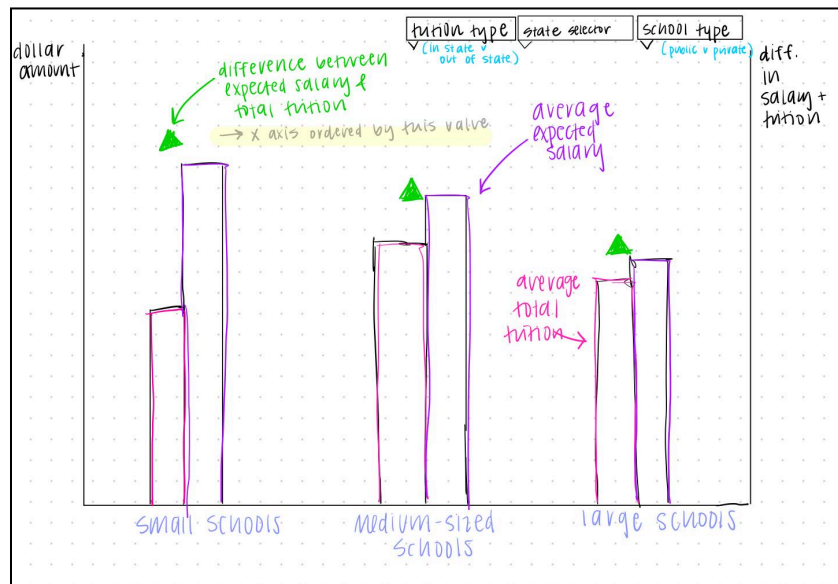 dollar
amount
tuition type
(in state v
out of state)
state selector
school type
(public v private)
diff.
in
salary +
tuition
difference between
expected salary &
total tuition
→ x axis ordered by this value
average
expected
salary
average
total
tuition
small schools
medium-sized
schools
large schools